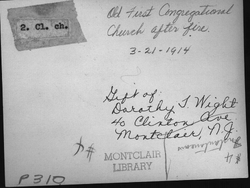 2. Cl. ch.
Old First Congregational
Church after fire.
3-21-1914
Gift of:
Dorothy T Wight
40 Clinton Ave
Montclair, N.J.
#4
MONTCLAIR
LIBRARY
#4
P310